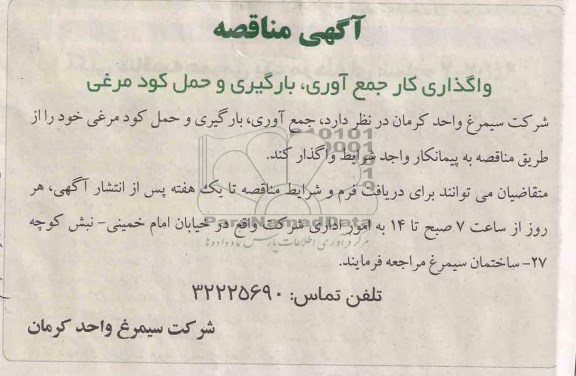 آگهی مناقصه
واگذاری کار جمع آوری، بارگیری و حمل کود مرغی
شرکت سیمرغ واحد کرمان در نظر دارد، جمع آوری، بارگیری و حمل کود مرغی خود را از
طریق مناقصه به پیمانکار واجد شرایط واگذار کند.
متقاضیان می توانند برای دریافت فرم و شرایط مناقصه تا یک هفته پس از انتشار آگهی، هر
روز از ساعت ۷ صبح تا ۱۴ به امور اداری شرکت واقع در خیابان امام خمینی- نبش کوچه
ParsNamadData
مرکز فرآوری اطلاعات پارس نماد داده ها
۲۷- ساختمان سیمرغ مراجعه فرمایند.
تلفن تماس: ۳۲۲۲۵۶۹۰
شرکت سیمرغ واحد کرمان